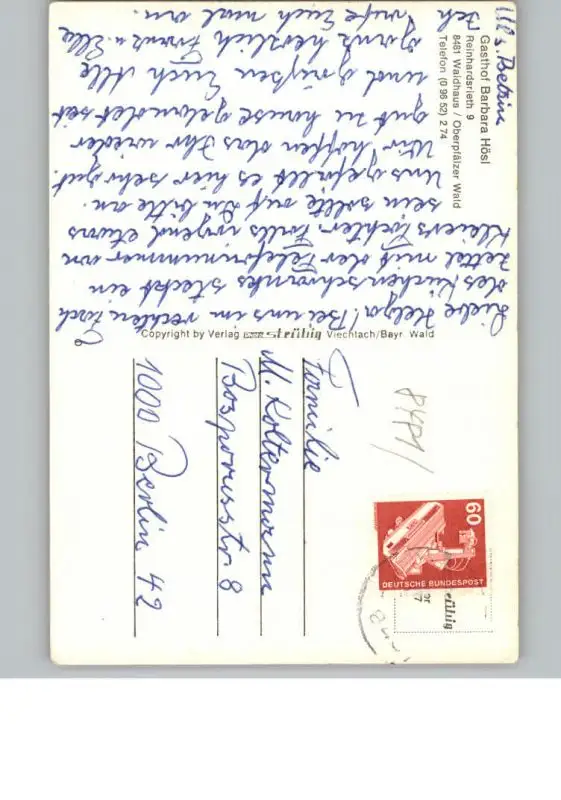 Gasthof Barbara Hösl
Reinhardsrieth 9
8481 Waidhaus / Oberpfälzer Wald
Telefon (0 96 52) 2 74
Liebe Helga! Bei uns im rechten Fach
des Küchenschrankes steckt ein
Zettel mit der Telefonnummer von
Kleiers Tochter. Falls irgend etwas
sein sollte ruf Du bitte an.
Uns gefällt es hier sehr gut.
Wir hoffen das Ihr wieder
gut zu hause gelandet seit
und grüßen Euch Alle
ganz herzlich Franz u. Ella
Ich rufe Euch mal an.
Copyright by Verlag Viechtach/Bayr. Wald
8481
60
DEUTSCHE BUNDESPOST
Familie
M. Koltermann
Bosporusstr 8
1000 Berlin 42